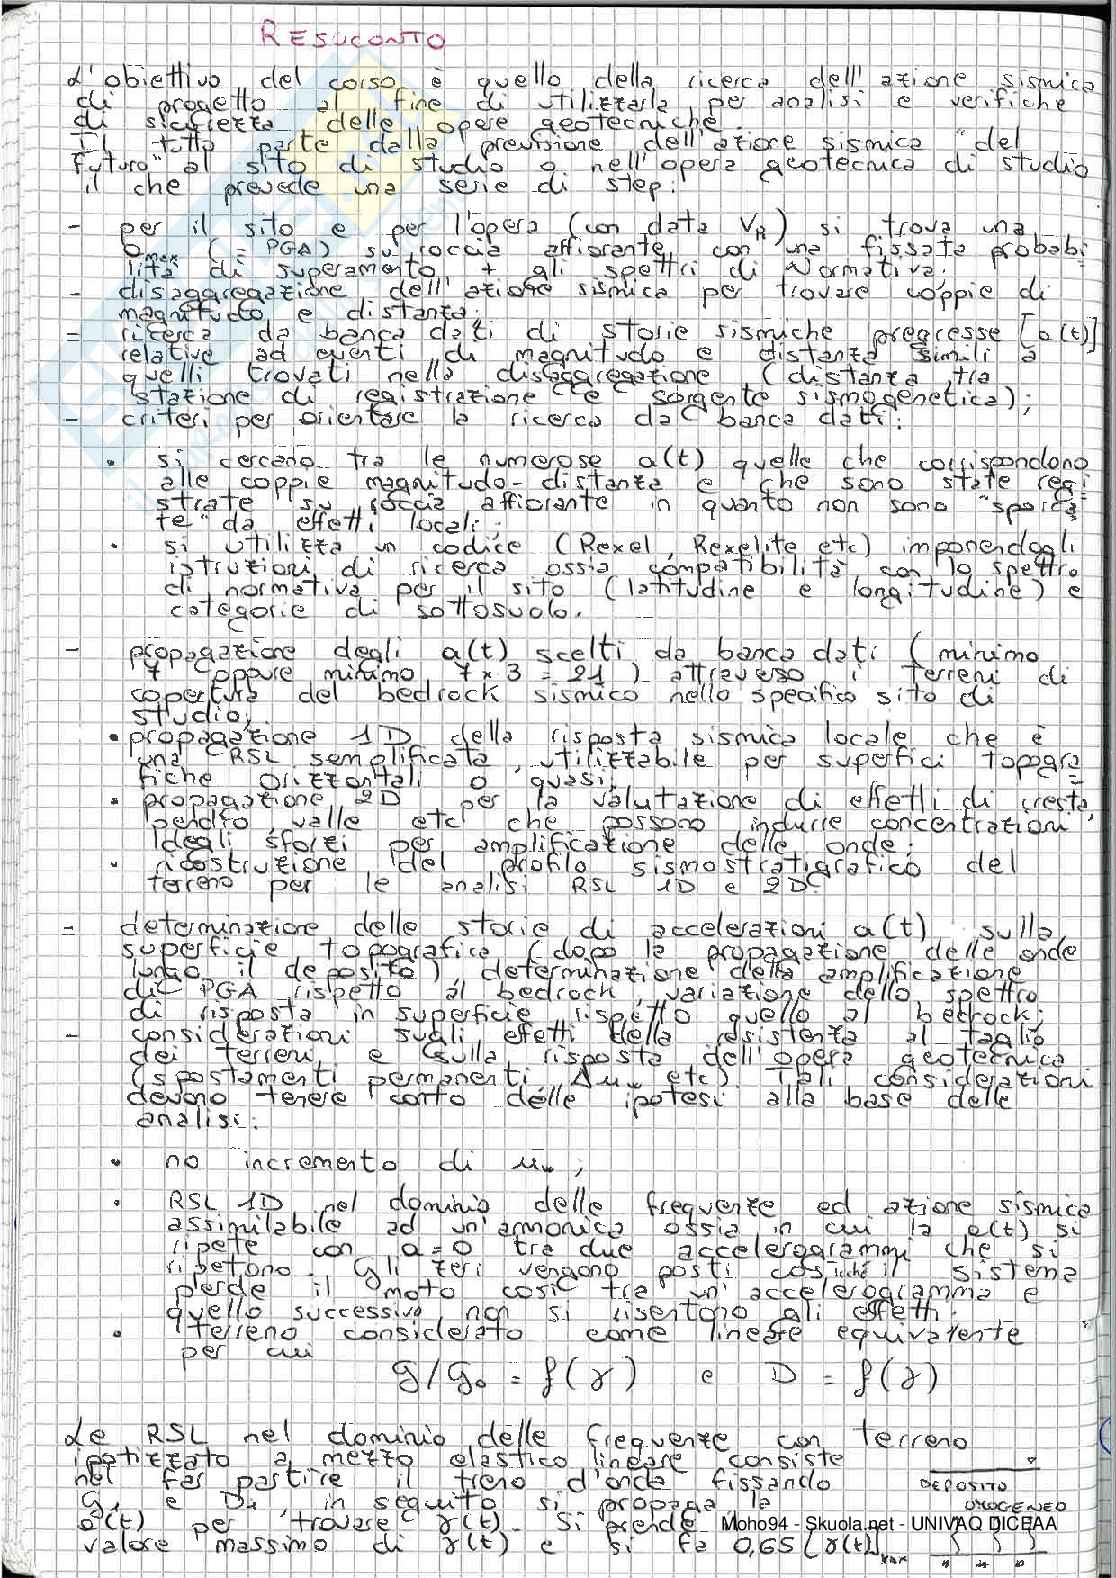 RESUCONTO
L'obiettivo del corso è quello della ricerca dell'azione sismica
di progetto al fine di utilizzarla per analisi e verifiche
di sicurezza delle opere geotecniche.
Il tutto parte dalla previsione dell'azione sismica "del
futuro" al sito di studio o nell'opera geotecnica di studio
il che prevede una serie di step:
- per il sito e per l'opera (con data VR) si trova una
amax (= PGA) su roccia affiorante con una fissata probabi
lità di superamento + gli spettri di Normativa;
- disaggregazione dell'azione sismica per trovare coppie di
magnitudo e distanza;
= ricerca da banca dati di storie sismiche pregresse [a(t)]
relative ad eventi di magnitudo e distanza simili a
quelli trovati nella disaggregazione (distanza tra
stazione di registrazione e sorgente sismogenetica);
- criteri per orientare la ricerca da banca dati:
• si cercano tra le numerose a(t) quelle che corrispondono
alle coppie magnitudo-distanza e che sono state regi
strate su roccia affiorante in quanto non sono "sporca
te" da effetti locali;
• si utilizza un codice (Rexel, Rexelite etc) imponendogli
istruzioni di ricerca ossia compatibilità con lo spettro
di normativa per il sito (latitudine e longitudine) e
categorie di sottosuolo.
- propagazione degli a(t) scelti da banca dati (minimo
7 oppure minimo 7x3=21) attraverso i terreni di
copertura del bedrock sismico nello specifico sito di
studio;
• propagazione 1D della risposta sismica locale che è
una RSL semplificata, utilizzabile per superfici topogra=
fiche orizzontali o quasi;
• propagazione 2D per la valutazione di effetti di cresta,
pendio, valle etc che possono indurre concentrazioni
degli sforzi per amplificazione delle onde;
• ricostruzione del profilo sismostratigrafico del
terreno per le analisi RSL 1D e 2D.
- determinazione delle storie di accelerazioni a(t) sulla
superficie topografica (dopo la propagazione delle onde
lungo il deposito), determinazione della amplificazione
di PGA rispetto al bedrock, variazione dello spettro
di risposta in superficie rispetto quello al bedrock;
- considerazioni sugli effetti della resistenza al taglio
dei terreni e sulla risposta dell'opera geotecnica
(spostamenti permanenti, Δuw etc). Tali considerazioni
devono tenere conto delle ipotesi alla base delle
analisi:
• no incremento di uw;
• RSL 1D nel dominio delle frequenze ed azione sismica
assimilabile ad un'armonica ossia in cui la a(t) si
ripete con a=0 tra due accelerogrammi che si
ripetono. Gli zeri vengono posti cosicché il sistema
perde il moto così tra un'accelerogramma e
quello successivo non si risentono gli effetti.
• terreno considerato come lineare equivalente
per cui
G/G₀ = f(γ) e D = f(γ)
Le RSL nel dominio delle frequenze con terreno
ipotizzato a mezzo elastico lineare consiste
nel far partire il treno d'onda fissando
G₁ e D₁, in seguito si propaga la
a(t) per trovare γ(t). Si prende
valore massimo di γ(t) e si fa 0,65 [γ(t)]max
DEPOSITO
OMOGENEO
Moho94 - Skuola.net - UNIVAQ DICEAA